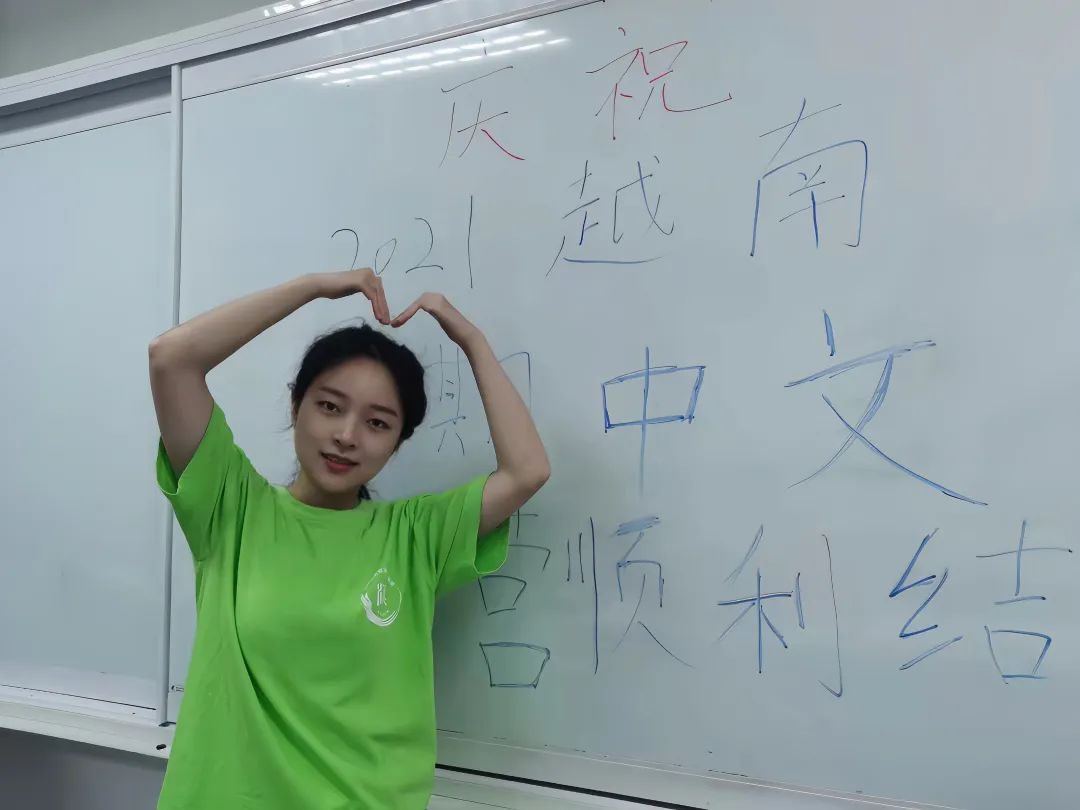 庆祝
2021越南
期中文
营顺利结